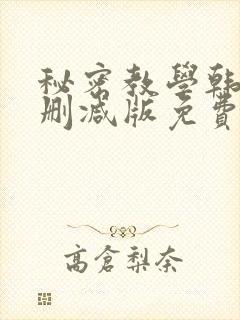 秘密教學韩
删减版免費
高倉梨奈